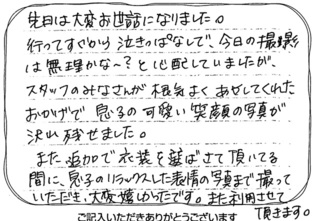 先日は大変お世話になりました。
行ってすぐから泣きっぱなしで、今日の撮影
は無理かな〜?と心配していましたが、
スタッフのみなさんが根気よくあやしてくれた
おかげで息子の可愛い笑顔の写真が
沢山残せました。
また追加で衣装を選ばさせて頂いてる
間に、息子のリラックスした表情の写真まで撮って
いただき、大変嬉しかったです。また利用させて
頂きます。
ご記入いただきありがとうございます